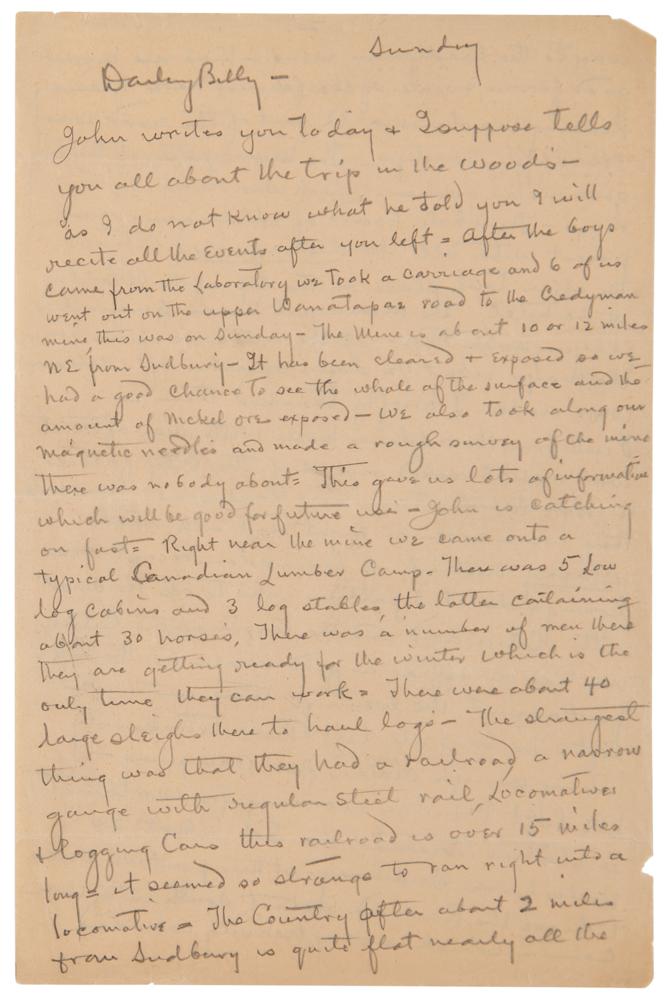 Sunday
Darling Billy —
John writes you today & I suppose tells
you all about the trip in the woods —
as I do not know what he told you I will
recite all the Events after you left = After the boys
came from the Laboratory we took a carriage and 6 of us
went out on the upper Wanatapae road to the Gredyman
mine, this was on Sunday — The Mine is about 10 or 12 miles
NE from Sudbury — It has been cleared & Exposed so we
had a good chance to see the whole of the surface and the
amount of Nickel ore exposed — we also took along our
magnetic needles and made a rough survey of the mine
There was nobody about = This gave us lots of information
which will be good for future use — John is catching
on fast = Right near the mine we came onto a
typical Canadian Lumber Camp. There was 5 Low
log cabins and 3 log stables, the latter containing
about 30 horses, There was a number of men there
they are getting ready for the winter which is the
only time they can work = There were about 40
large sleighs there to haul logs — The strangest
thing was that they had a railroad a narrow
gauge with regular steel rail, Locomotives
& logging Cars this railroad is over 15 miles
long = it seemed so strange to run right into a
locomotive = The Country after about 2 miles
from Sudbury is quite flat nearly all the